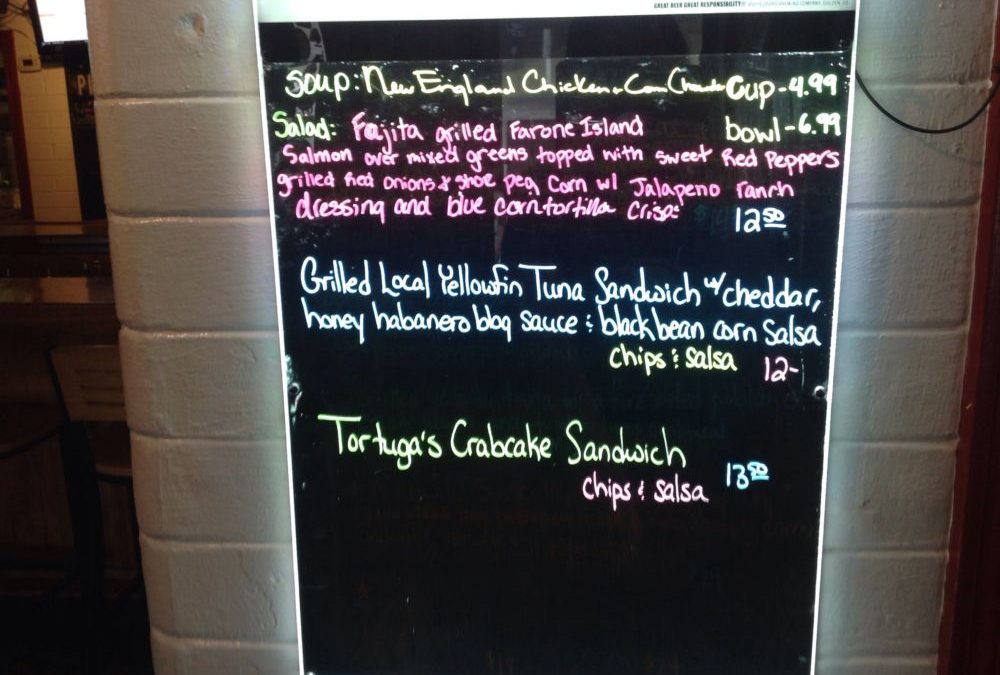 GREAT BEER GREAT RESPONSIBILITY®
Soup: New England Chicken & Corn Chowder Cup - 4.99
Salad: Fajita grilled Faroe Island bowl - 6.99
Salmon over mixed greens topped with sweet Red Peppers
grilled Red onions & shoe peg Corn w/ Jalapeno ranch
dressing and blue corn tortilla crisps 12 50
Grilled Local Yellowfin Tuna Sandwich w/ cheddar,
honey habanero bbq sauce & black bean corn Salsa
chips & salsa 12-
Tortuga's Crabcake Sandwich
chips & salsa 13 50